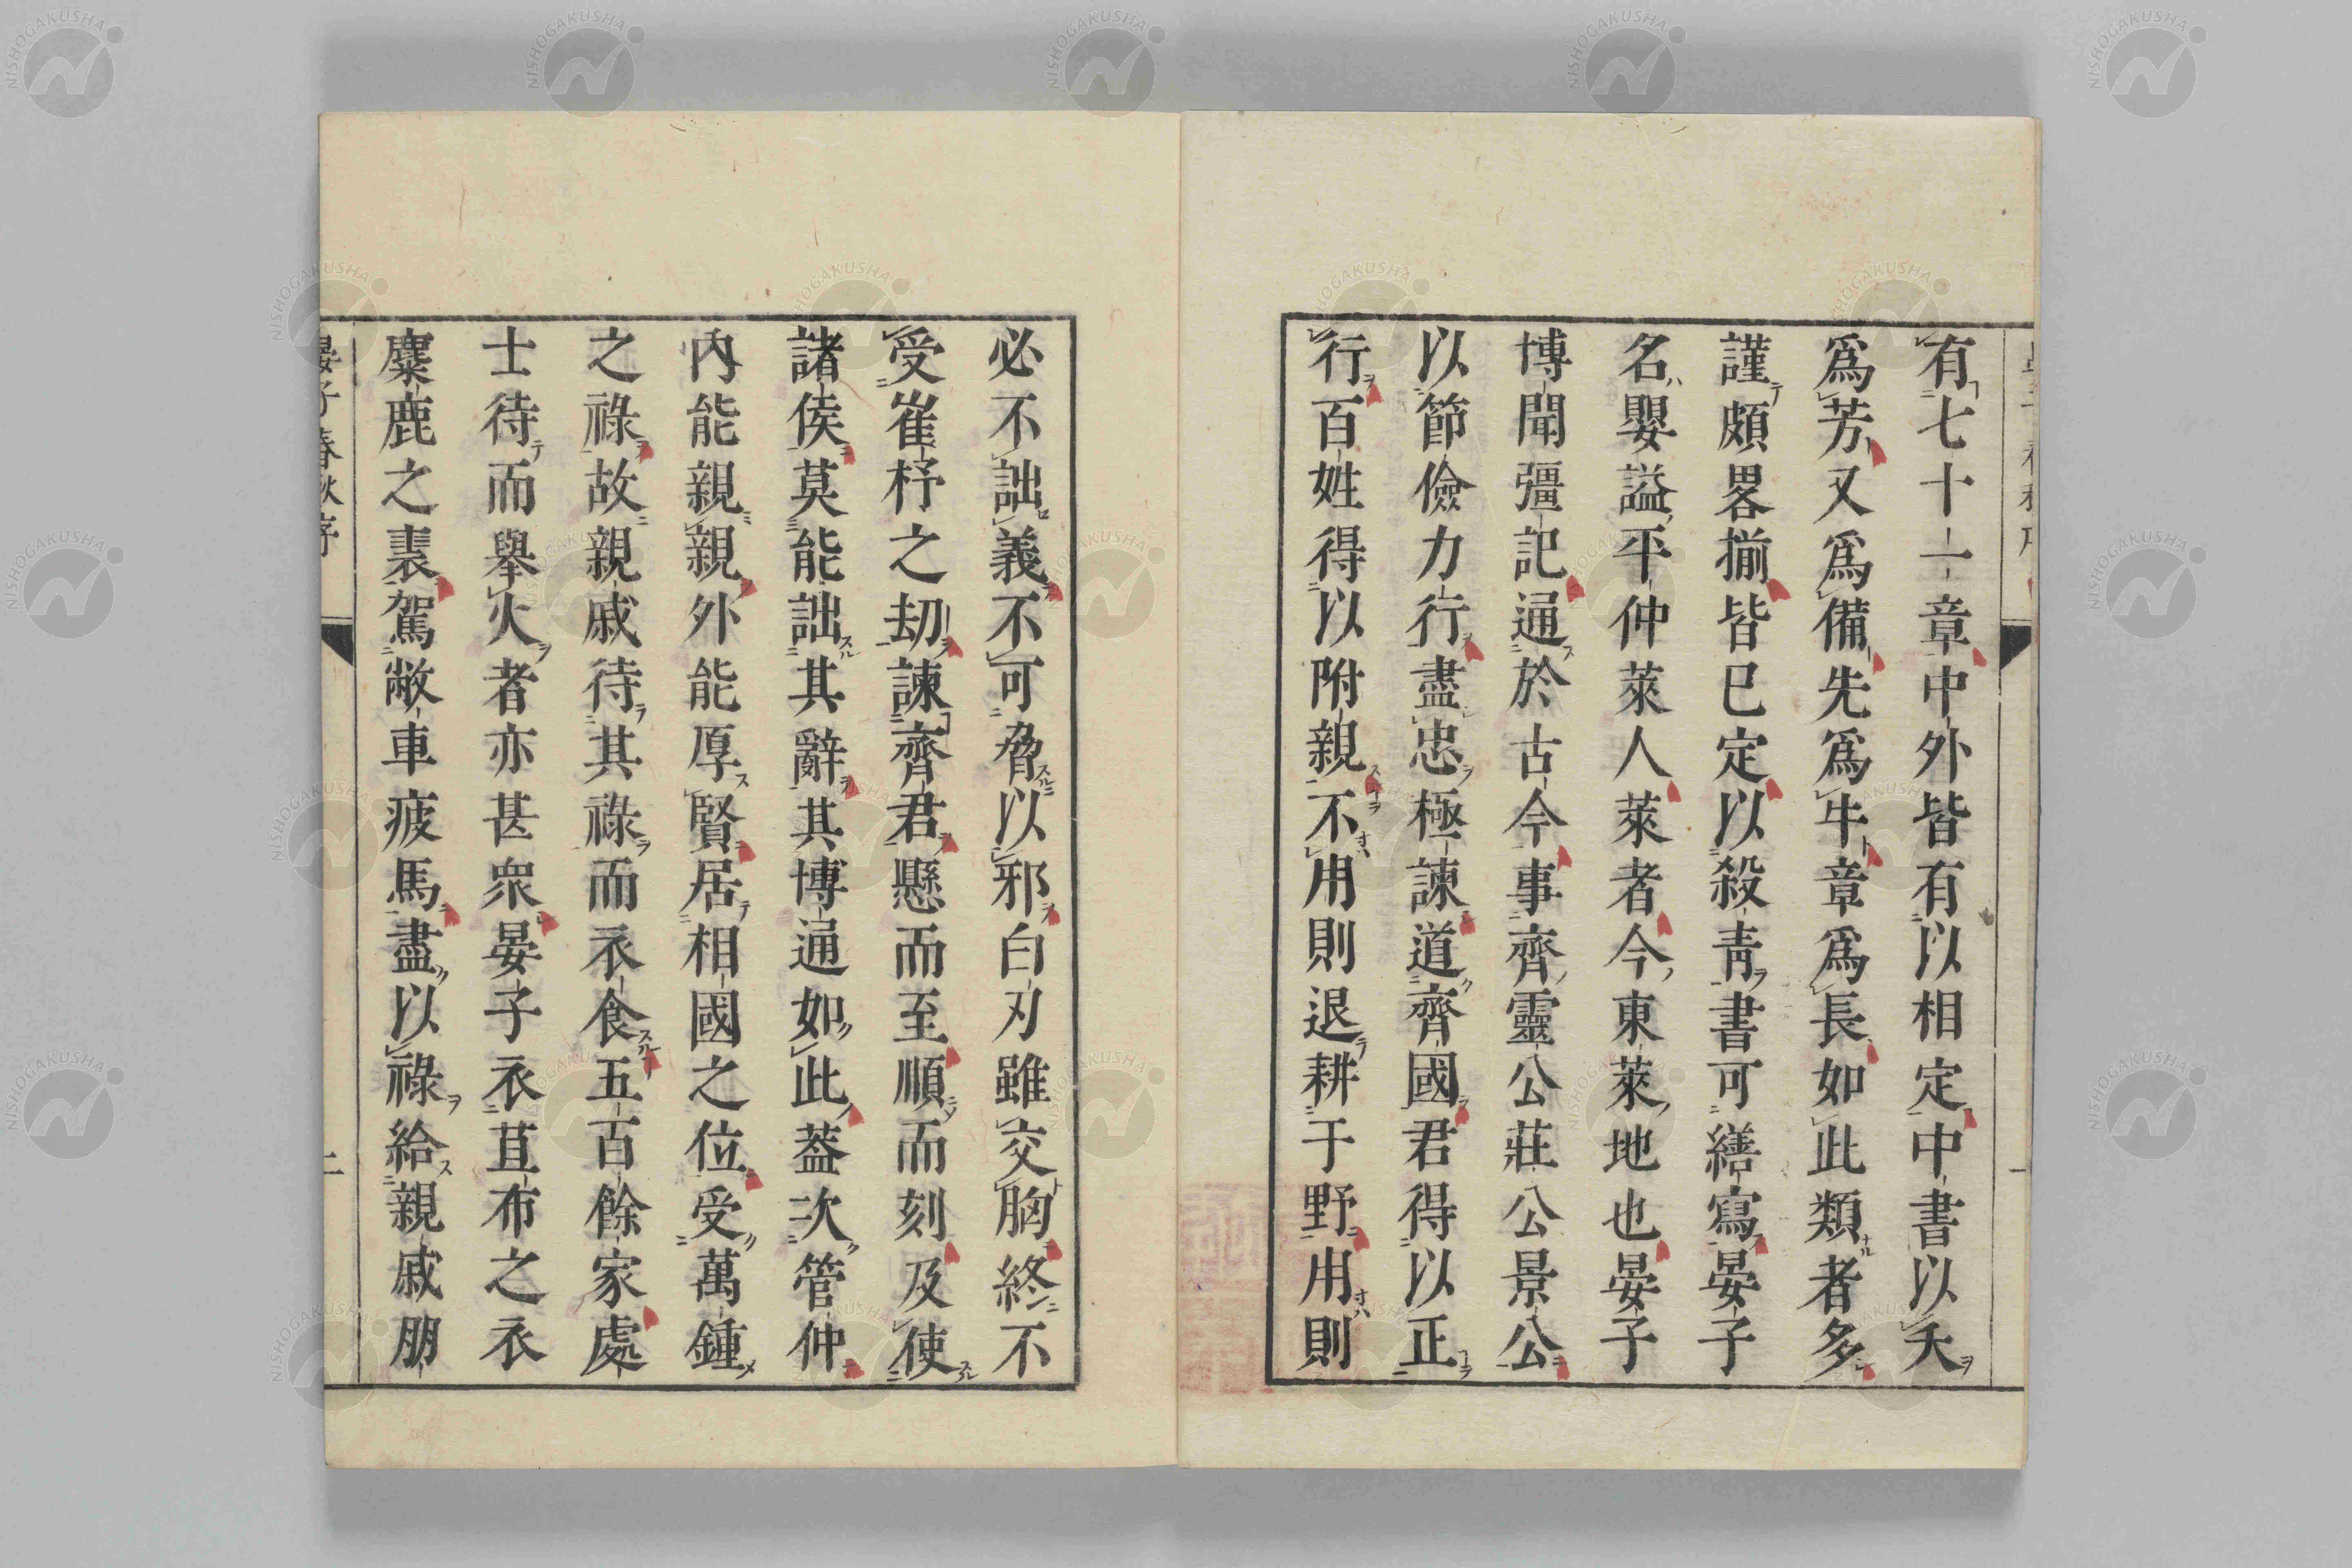 有七十一章中外皆有以相定中書以夭
爲芳又爲備先爲牛章爲長如此類者多
謹頗畧揃皆已定以殺青書可繕寫晏子
名嬰謚平仲萊人萊者今東萊地也晏子
博聞彊記通於古今事齊靈公莊公景公
以節儉力行盡忠極諫道齊國君得以正
行百姓得以附親不用則退耕于野用則
必不詘義不可脅以邪白刃雖交胸終不
受崔杼之劫諫齊君懸而至順而刻及使
諸侯莫能詘其辭其博通如此葢次管仲
內能親親外能厚賢居相國之位受萬鍾
之祿故親戚待其祿而衣食五百餘家處
士待而舉火者亦甚衆晏子衣苴布之衣
麋鹿之裘駕敝車疲馬盡以祿給親戚朋
晏子春秋序
二
NISHOGAKUSHA